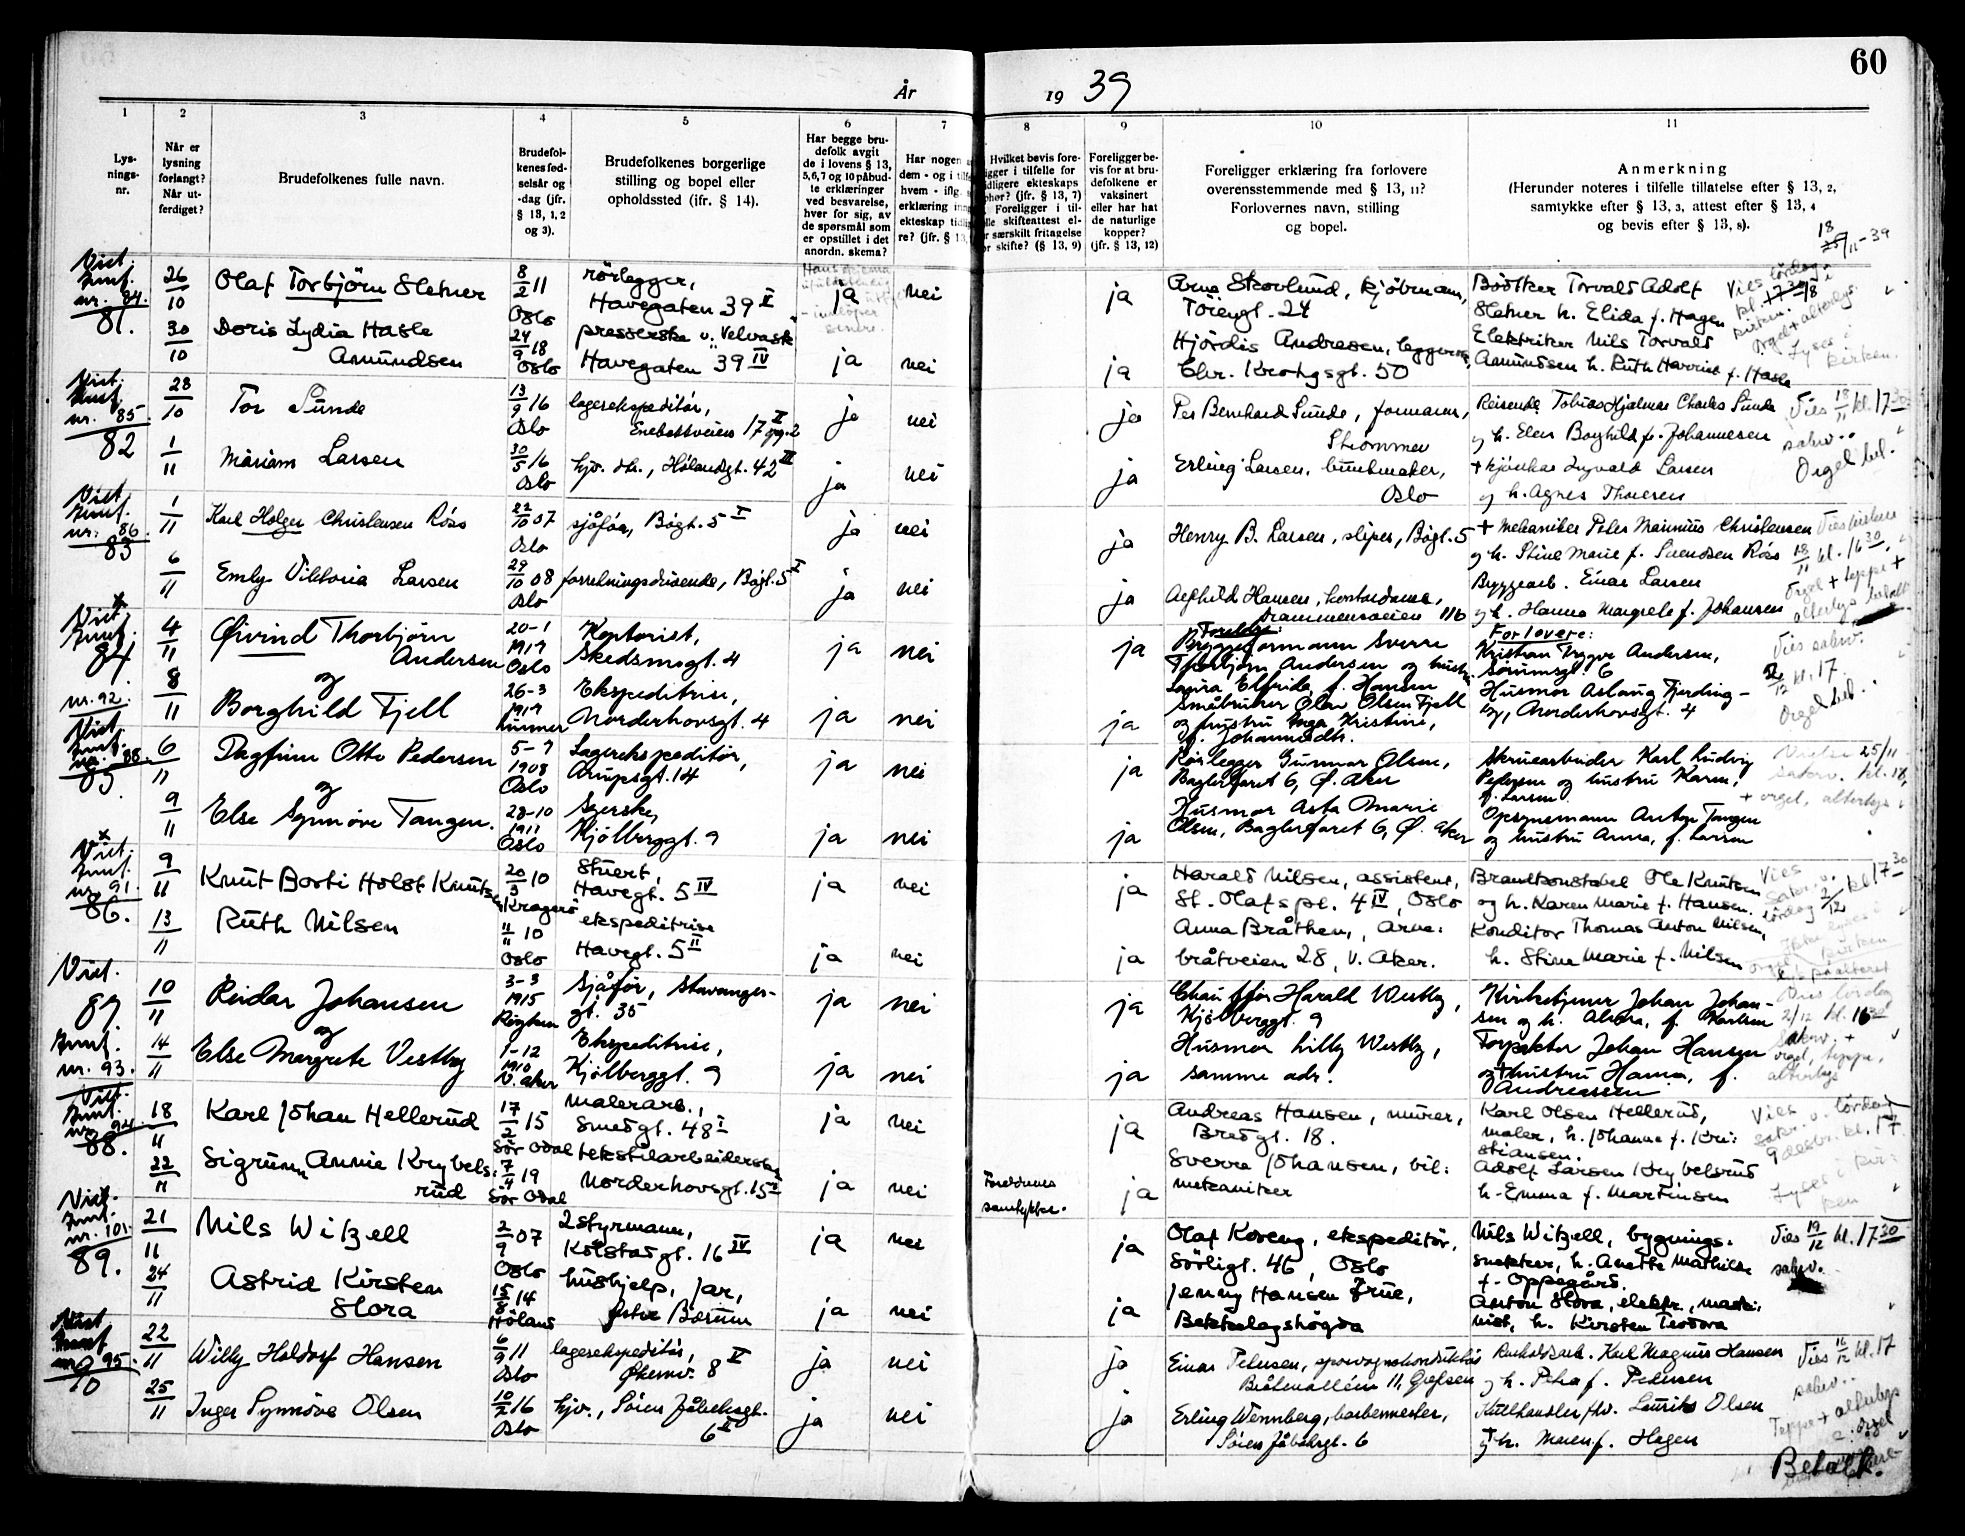 60
År 19 39
1 2 3 4 5 6 7 8 9 10 11
Lys-
nings-
nr.
Når er
lysning
forlangt?
Når ut-
ferdiget?
Brudefolkenes fulle navn.
Brudefol-
kenes fød-
selsår og
-dag (jfr.
§ 13, 1, 2
og 3).
Brudefolkenes borgerlige
stilling og bopel eller
opholdssted (ifr. § 14).
Har begge bru-
defolk avgit
de i lovens § 13,
5,6,7 og 10 påbud-
te erklæringer
ved besvarelse,
hver for sig, av
de spørsmål som
er opstillet i det
anordn. skema?
Har nogen
dem - og i
hvem - iflg.
erklæring
ekteskap
re? (jfr. § 13,
Hvilket bevis fore-
ligger i tilfelle for
tidligere ekteskaps
ophør? (jfr. § 13, 7)
Foreligger i til-
felle skifteattest el-
særskilt fritagelse
for skifte? (§ 13, 9)
Foreligger be-
vis for at bru-
defolkene er
vaksinert
eller har hat
de naturlige
kopper?
(jfr. § 13, 12)
Foreligger erklæring fra forlovere
overensstemmende med § 13, 11?
Forlovernes navn, stilling
og bopel.
Anmerkning
(Herunder noteres i tilfelle tillatelse efter § 13, 2,
samtykke efter § 13, 3, attest efter § 13, 4
og bevis efter § 13, 8).
18/11-39
Viet.
nr. 84.
81.
26/10 Olaf Torbjörn Sletner 8/2 11 Oslo
rörlegger,
Havegaten 39 II
ja nei ja
Arne Skovlund, kjöbmann,
Töiengt. 24
Bödtker Torvald Adolf
Sletner h. Elida f. Hagen
30/10 Doris Lydia Hasle
Amundsen
24/9 18 Oslo
presserske v. Velvask
Havegaten 39 IV
ja nei ja
Hjördis Andresen, leggerske
Chr. Krohgsgt. 50
Elektriker Nils Torvald
Amundsen h. Ruth Harriet f. Hasle
Viet.
nr. 85.
82
28/10 Tor Sunde 13/9 16 Oslo
lagerekspeditör,
Enebakkveien 17 II opg. 2
ja nei ja
Per Bernhard Sunde, formann,
Strömmen
Reisende Tobias Hjalmar Charles Sunde
og h. Elen Borghild f. Johannesen
Vies 18/11 kl. 17 30
Orgel bet.
1/11 Miriam Larsen 30/5 16 Oslo
hjv. dtr., Hölandsgt. 42 III
ja nei ja
Erling Larsen, buntmaker,
Oslo
+ kjörekar Ingvald Larsen
og h. Agnes Thoresen
Viet
nr. 86.
83
1/11 Karl Holger Christensen Röss 22/10 07 Oslo
sjåför, Bögt. 5 I
ja nei ja
Henry B. Larsen, sliper, Bögt. 5
+ mekaniker Peter Marinius Christensen
og h. Stine Marie f. Svendsen Röss
18/11 kl. 16 30
6/11 Emly Viktoria Larsen 29/10 08 Oslo
forretningsdrivende, Bögt. 5 I
ja nei ja
Alfhild Hansen, kontordame,
Drammensveien 116
Byggearb. Einar Larsen
og h. Hanna Margrete f. Johansen
Orgel + teppe +
alterlys betalt
Viet
84
nr. 92.
4/11 Øivind Thorbjörn
Andersen
20-1
1919
Oslo
Kontorist,
Skedsmogt. 4
ja nei ja
Foreldre:
Byggeformann Sverre
Thorbjörn Andersen og hustru
Laura Elfrida, f. Hansen
Forlovere:
Kristian Trygve Andersen,
Sörumsgt. 6
Vies sakrv.
2/12 kl. 17.
Orgel bet.
og
8/11 Borghild Fjell
26-3
1919
Lunner
Ekspeditrise,
Norderhovsgt. 4
ja nei ja
Småbruker Olav Olsen Fjell
og hustru Inga Kristine,
f. Johannesdtr.
Husmor Aslaug Fjerding-
by, Norderhovsgt. 4
Viet
nr. 88.
85
6/11 Dagfinn Otto Pedersen
5-7
1908
Oslo
Lagerekspeditör,
Arupsgt. 14
ja nei ja
Rörlegger Gunnar Olsen,
Baglerfaret 6, Ø. Aker
Skruearbeider Karl Ludvig
Pedersen og hustru Karen,
f. Larsen
25/11
kl. 18,
+ orgel, alterlys
og
9/11 Else Synnöve Tangen.
28-10
1911
Oslo
Syerske,
Kjölberggt. 9
ja nei ja
Husmor Asta Marie
Olsen, Baglerfaret 6, Ø. Aker
Opsynsmann Anton Tangen
og hustru Anna, f. Larsen
Viet.
nr. 91.
86.
9/11 Knut Borti Holst Knutsen 20/3 10 Kragerö
Stuert,
Havegt. 5 IV
ja nei ja
Harald Nilsen, assistent,
St. Olafs pl. 4 IV, Oslo
Brandkonstabel Ole Knutsen
og h. Karen Marie f. Hansen.
Vies
lördag 2/12 kl. 17 30
13/11 Ruth Nilsen 11/11 10 Oslo
ekspeditrise
Havegt. 5 II
ja nei ja
Anna Bråthen, Arne:
bråtveien 28, V. Aker.
Konditor Thomas Anton Nilsen,
h. Stine Marie f. Nilsen
Viet.
87
nr. 93.
10/11 Reidar Johansen
3-3
1915
Röyken
Sjåför, Stavanger-
gt. 35
ja nei ja
Chaufför Harald Vestby,
Kjölberggt. 9
Kirketjener Johan Johan-
sen og h. Alvra, f. Karlsen
Vies lördag
2/12 kl. 16 30
og
14/11 Else Margrete Vestby
1-12
1910
V. Aker
Ekspeditrise,
Kjölberggt. 9
ja nei ja
Husmor Lilly Vestby,
samme adr.
Torpekter Johan Hansen
og hustru Hanna, f.
Andreassen
orgel, teppe,
alterlys
Viet.
nr. 94.
88.
18/11 Karl Johan Hellerud 17/2 15 Sör Odal
malerarb.,
Smedgt. 48 I
ja nei ja
Andreas Hansen, murer,
Bredgt. 18.
Karl Olsen Hellerud,
maler, h. Johanne f. Kri:
stiansen.
Vies
9 desbr. kl. 17
22/11 Sigrunn Annie Krybels:
rud
7/4 19 Sör Odal
tekstilarbeiderske
Norderhovsgt. 15 I
ja nei
Foreldrenes
samtykke.
ja
Sverre Johansen, bil:
mekaniker
Adolf Larsen Krybelsrud
h. Emma f. Martinsen
Lyses i kir:
ken
Viet.
nr. 101.
89.
21/11 Nils Witzell 2/9 07 Oslo
2 styrmann,
Kolstadgt. 16 IV
ja nei ja
Olaf Koreng, ekspeditör,
Sörligt. 46, Oslo
Nils Witzell, bygnings.
snekker, h. Anette Mathilde
f. Oppegård.
Vies 19/12 kl. 17 30
sakrv.
24/11 Astrid Kirsten
Slora
15/8 14 Höland
hushjelp, Jar,
Östre Bærum
ja nei ja
Jenny Hansen Frue,
Bekkelagshögda
Anton Slora, elektr. maski:
nist, h. Kirsten Teodora
Viet
nr. 95.
90
22/11 Willy Haldorf Hansen 6/9 11 Oslo
lagerekspeditör,
Økernv. 8 V
ja nei ja
Einar Petersen, sporvognskonduktör
Bråtenalléen 11, Grefsen
Renholdsarb. Karl Magnus Hansen
og h. Petra f. Pedersen
Vies 16/12 kl. 17
sakrv.
25/11 Inger Synnöve Olsen 10/2 16 Oslo
hjv., Sören Jåbeksgt.
6 II
ja nei ja
Erling Wennberg, barbermester,
Sören Jåbeksgt. 6
Kullhandler Laurits Olsen
og h. Maren f. Hagen
Teppe + alterlys
orgel
Betalt.